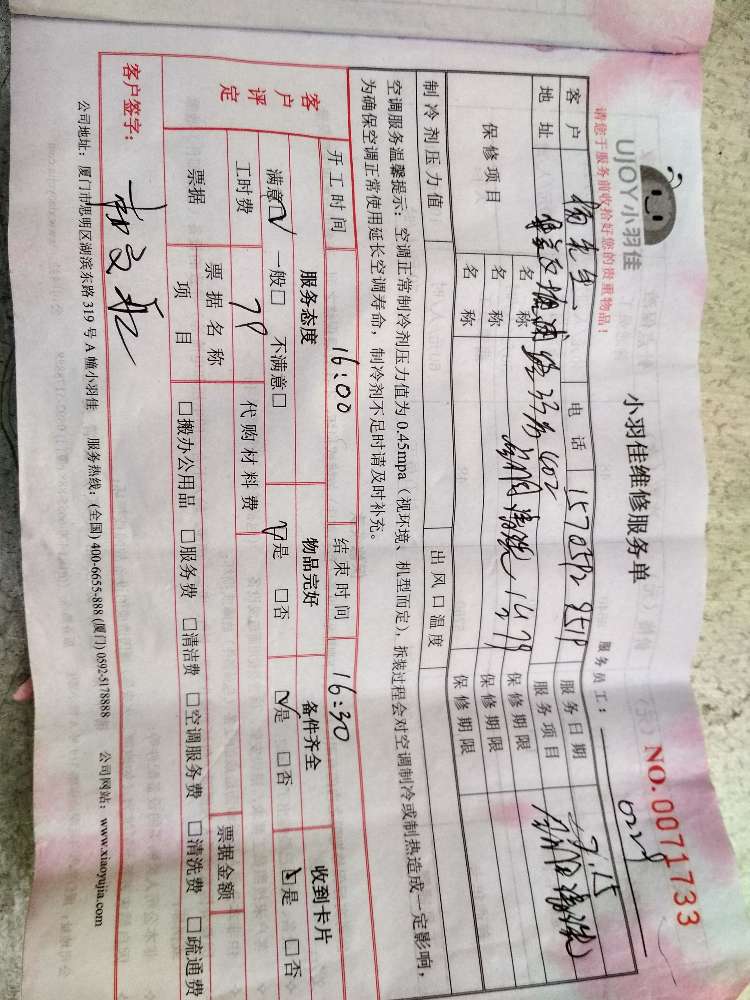 UJOY小羽佳
小羽佳维修服务单
NO.0071733
请您于服务前收拾好您的贵重物品！
服务员工：
客户 电话 服务日期 7.15
地址 服务项目
保修项目 名称 保修期限
名称 保修期限
名称 保修期限
制冷剂压力值 出风口温度
空调服务温馨提示：空调正常制冷剂压力值为0.45mpa（视环境、机型而定），拆装过程会对空调制冷或制热造成一定影响，
为确保空调正常使用延长空调寿命，制冷剂不足时请及时补充。
开工时间 16:00 结束时间 16:30
客户评定
服务态度 物品完好 备件齐全 收到卡片
满意☑ 一般□ 不满意□ ☑是 □否 ☑是 □否 ☑是 □否
工时费 79 代购材料费
票据 票据名称 票据金额
项目 □搬办公用品 □服务费 □清洁费 □空调服务费 □清洗费 □疏通费
客户签字：
公司地址：厦门市思明区湖滨东路319号A幢小羽佳 服务热线：(全国) 400-6655-888 (厦门) 0592-5178888 公司网站：www.xiaoyujia.com